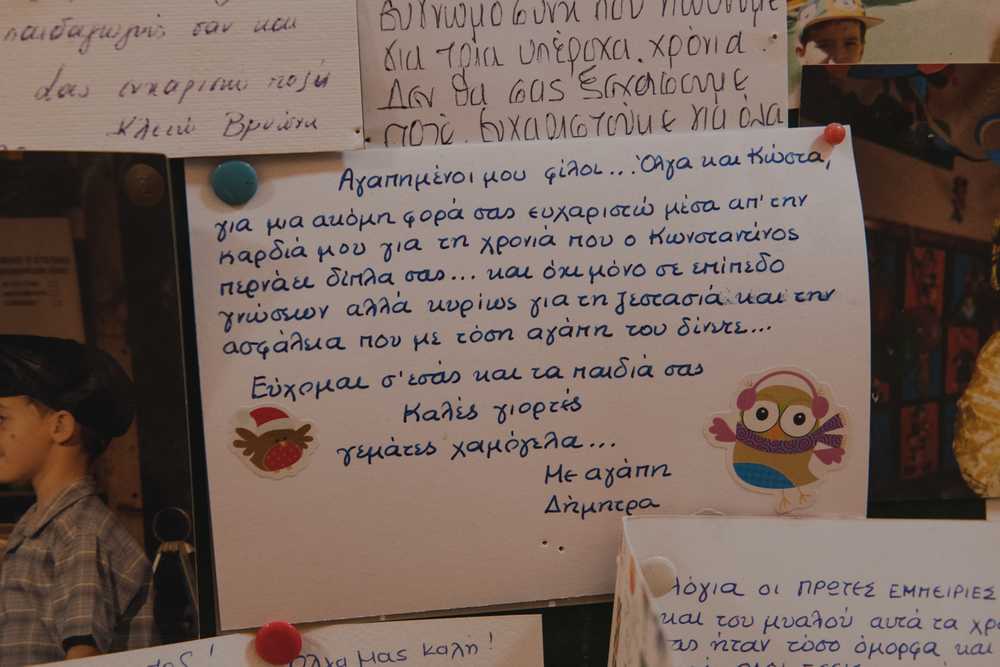 παιδαγωγός σαν και
σας ευχαριστώ πολύ
Κλειώ Βρυώνη
ευγνωμοσύνη που νιώθουμε
για τρία υπέροχα χρόνια.
Δεν θα σας ξεχάσουμε
ποτέ. Ευχαριστούμε για όλα
Αγαπημένοι μου φίλοι... Όλγα και Κώστα,
για μια ακόμη φορά σας ευχαριστώ μέσα απ' την
καρδιά μου για τη χρονιά που ο Κωνσταντίνος
περνάει δίπλα σας... και όχι μόνο σε επίπεδο
γνώσεων αλλά κυρίως για τη ζεστασιά και την
ασφάλεια που με τόση αγάπη του δίνετε...
Εύχομαι σ' εσάς και τα παιδιά σας
Καλές γιορτές
γεμάτες χαμόγελα...
Με αγάπη
Δήμητρα
λόγια οι ΠΡΩΤΕΣ ΕΜΠΕΙΡΙΕΣ
και του μυαλού αυτά τα
ήταν τόσο όμορφα και
Όλγα μας καλή!